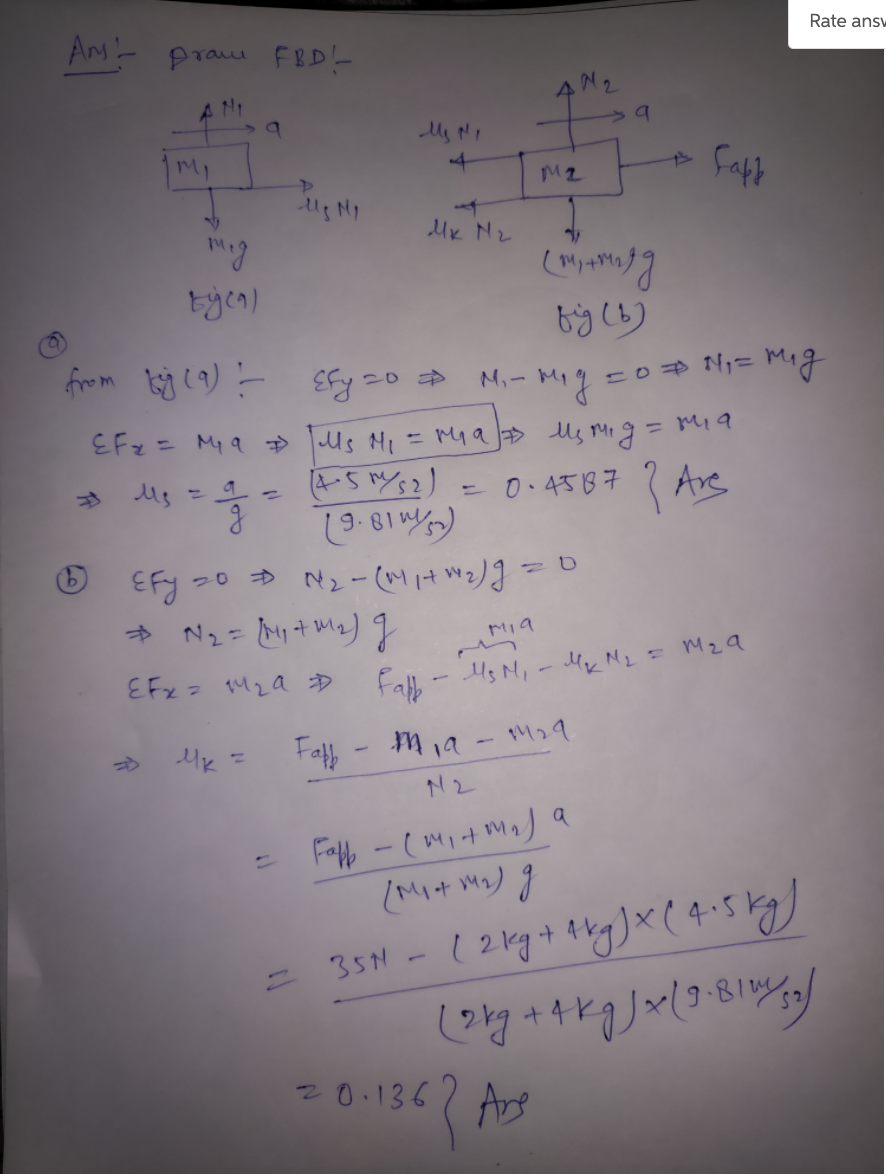 Rate answ
Ans:- Draw FBD:-
N1
a
M1
μs N1
m1g
fig(a)
N2
a
μs N1
M2
Fapp
μk N2
(m1+m2)g
fig (b)
(a)
from fig (a) :- ΣFy = 0 ⇒ N1 - m1g = 0 ⇒ N1 = m1g
ΣFx = m1a ⇒ μs N1 = m1a ⇒ μs m1g = m1a
⇒ μs = a/g = (4.5 m/s2)/(9.81 m/s2) = 0.4587 } Ans
(b) ΣFy = 0 ⇒ N2 - (m1+m2)g = 0
⇒ N2 = (m1+m2) g
m1a
ΣFx = m2a ⇒ Fapp - μs N1 - μk N2 = m2a
⇒ μk = Fapp - m1a - m2a
N2
= Fapp - (m1+m2) a
(m1+m2) g
= 35N - (2kg + 4kg) × (4.5 kg)
(2kg + 4kg) × (9.81 m/s2)
= 0.136 } Ans